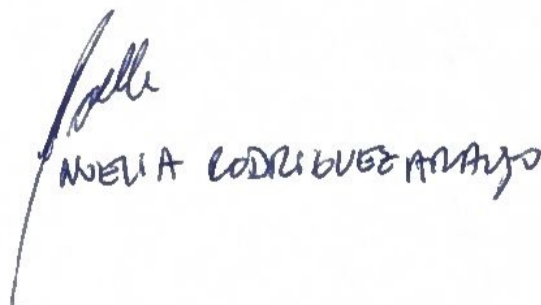 NOELIA RODRIGUEZ ARAUJO